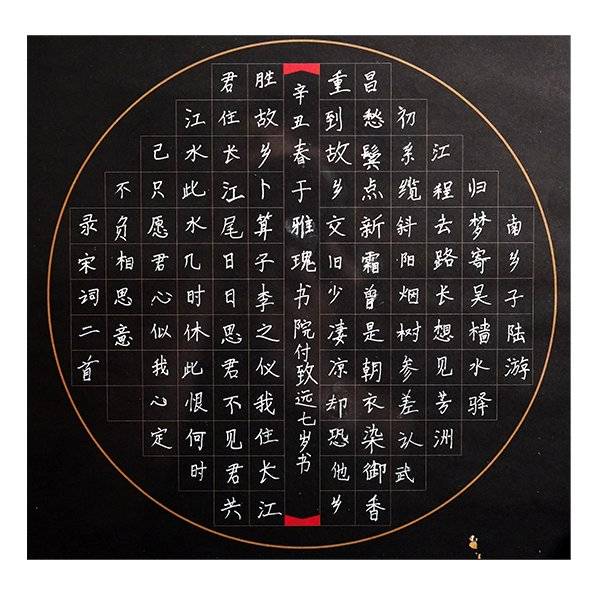 南乡子陆游
归梦寄吴樯水驿
江程去路长想见芳洲
初系缆斜阳烟树参差认武
昌愁鬓点新霜曾是朝衣染御香
重到故乡交旧少凄凉却恐他乡
辛丑春于雅瑰书院付致远七岁书
胜故乡卜算子李之仪我住长江
君住长江尾日日思君不见君共
江水此水几时休此恨何时
己只愿君心似我心定
不负相思意
录宋词二首